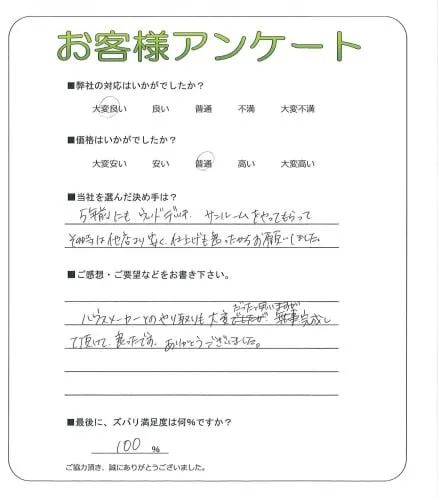 お客様アンケート
■弊社の対応はいかがでしたか?
大変良い 良い 普通 不満 大変不満
■価格はいかがでしたか?
大変安い 安い 普通 高い 大変高い
■当社を選んだ決め手は?
5年前にも ウッドデッキ、サンルームをやってもらって
その時は他店より安く、仕上げも良ったからお願いしました。
■ご感想・ご要望などをお書き下さい。
だったと思いますが
ハウスメーカーとのやり取りも大変でしたが、無事完成し
て頂けて、良ったです。ありがとうございました。
■最後に、ズバリ満足度は何%ですか?
100 %
ご協力頂き、誠にありがとうございました。